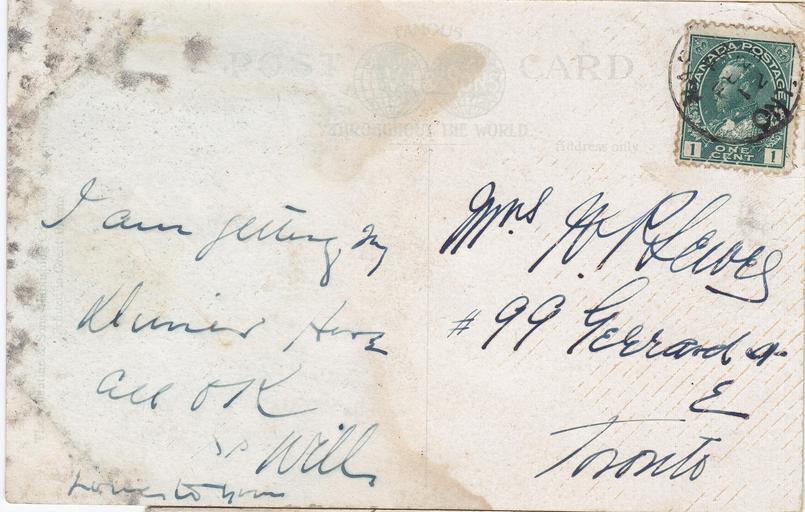 FAMOUS
POST CARD
THROUGHOUT THE WORLD
Address only
CANADA POSTAGE
1 ONE CENT 1
ONT.
I am getting my
dinner here
all OK
Will
Love to you
Mrs W R Lewes
# 99 Gerrard st
E
Toronto